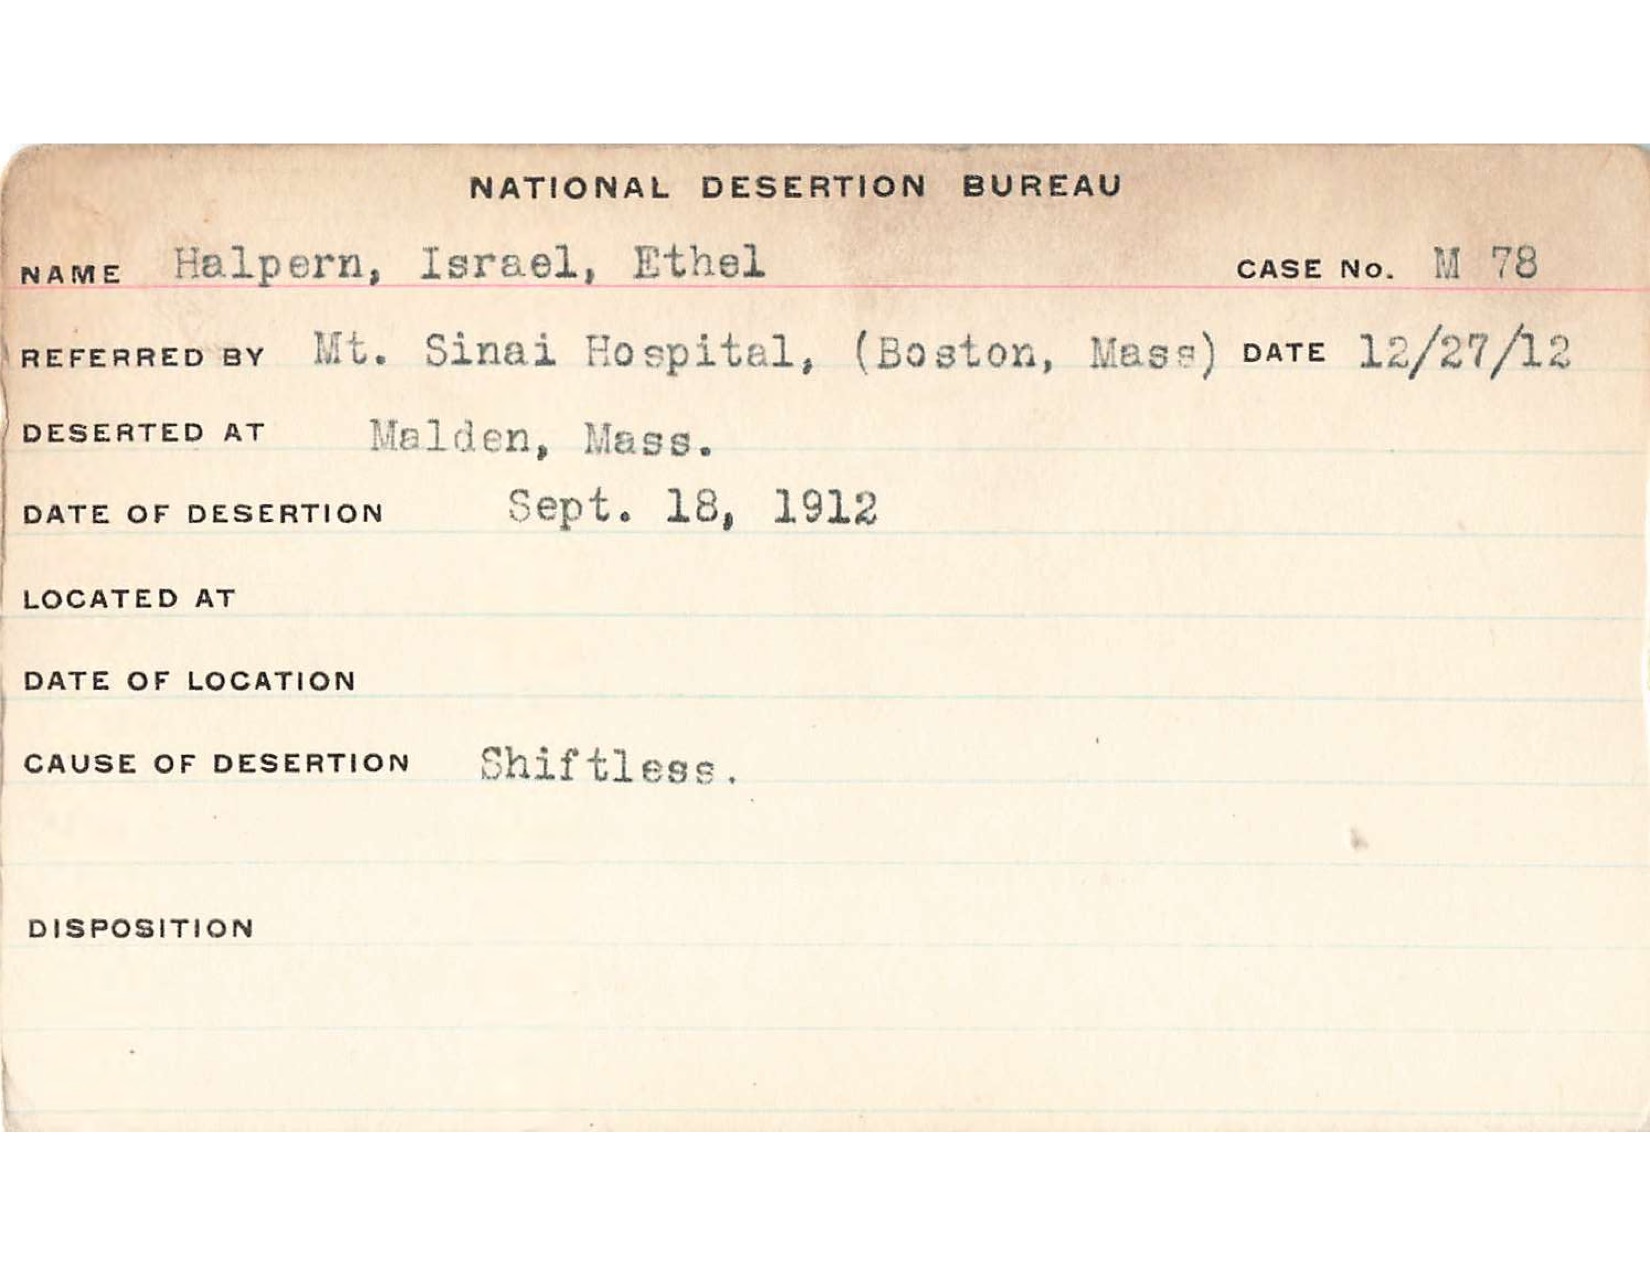 NATIONAL DESERTION BUREAU
NAME Halpern, Israel, Ethel CASE No. M 78
REFERRED BY Mt. Sinai Hospital, (Boston, Mass) DATE 12/27/12
DESERTED AT Malden, Mass.
DATE OF DESERTION Sept. 18, 1912
LOCATED AT
DATE OF LOCATION
CAUSE OF DESERTION Shiftless.
DISPOSITION